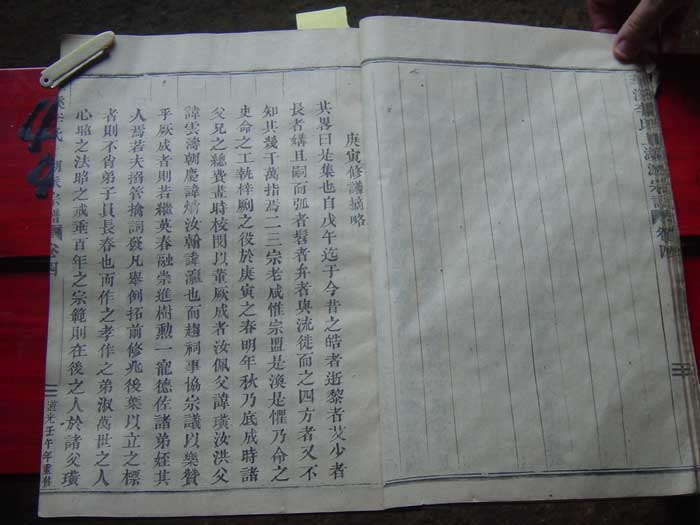 庚寅修議摘略
其畧曰是集也自戊午迄于今昔之皓者逝黎者艾少者
長者媾且嗣而弧者髫者弁者與流徙而之四方者又不
知其幾千萬指焉二三宗老咸惟宗盟是渙是懼乃命之
吏命之工執梓劂之役於庚寅之春明年秋乃底成時諸
父兄之總費畫時校閱以董厥成者汝佩父諱璜汝洪父
諱雲濤朝慶諱熺汝翰諱瀛也而趨祠事協宗議以樂贊
乎厥成者則若繼英春融崇進樹勲一寵德佐諸弟姪其
人焉若夫搦管擒詞發凡舉例拓前修兆後葉以立之標
者則不肖弟子員長春也而作之孝作之弟淑萬世之人
心昭之法昭之戒垂百年之宗範則在後之人於諸父璜
李氏 宗譜 卷四
道光壬午年重修
李氏 源宗譜 卷四